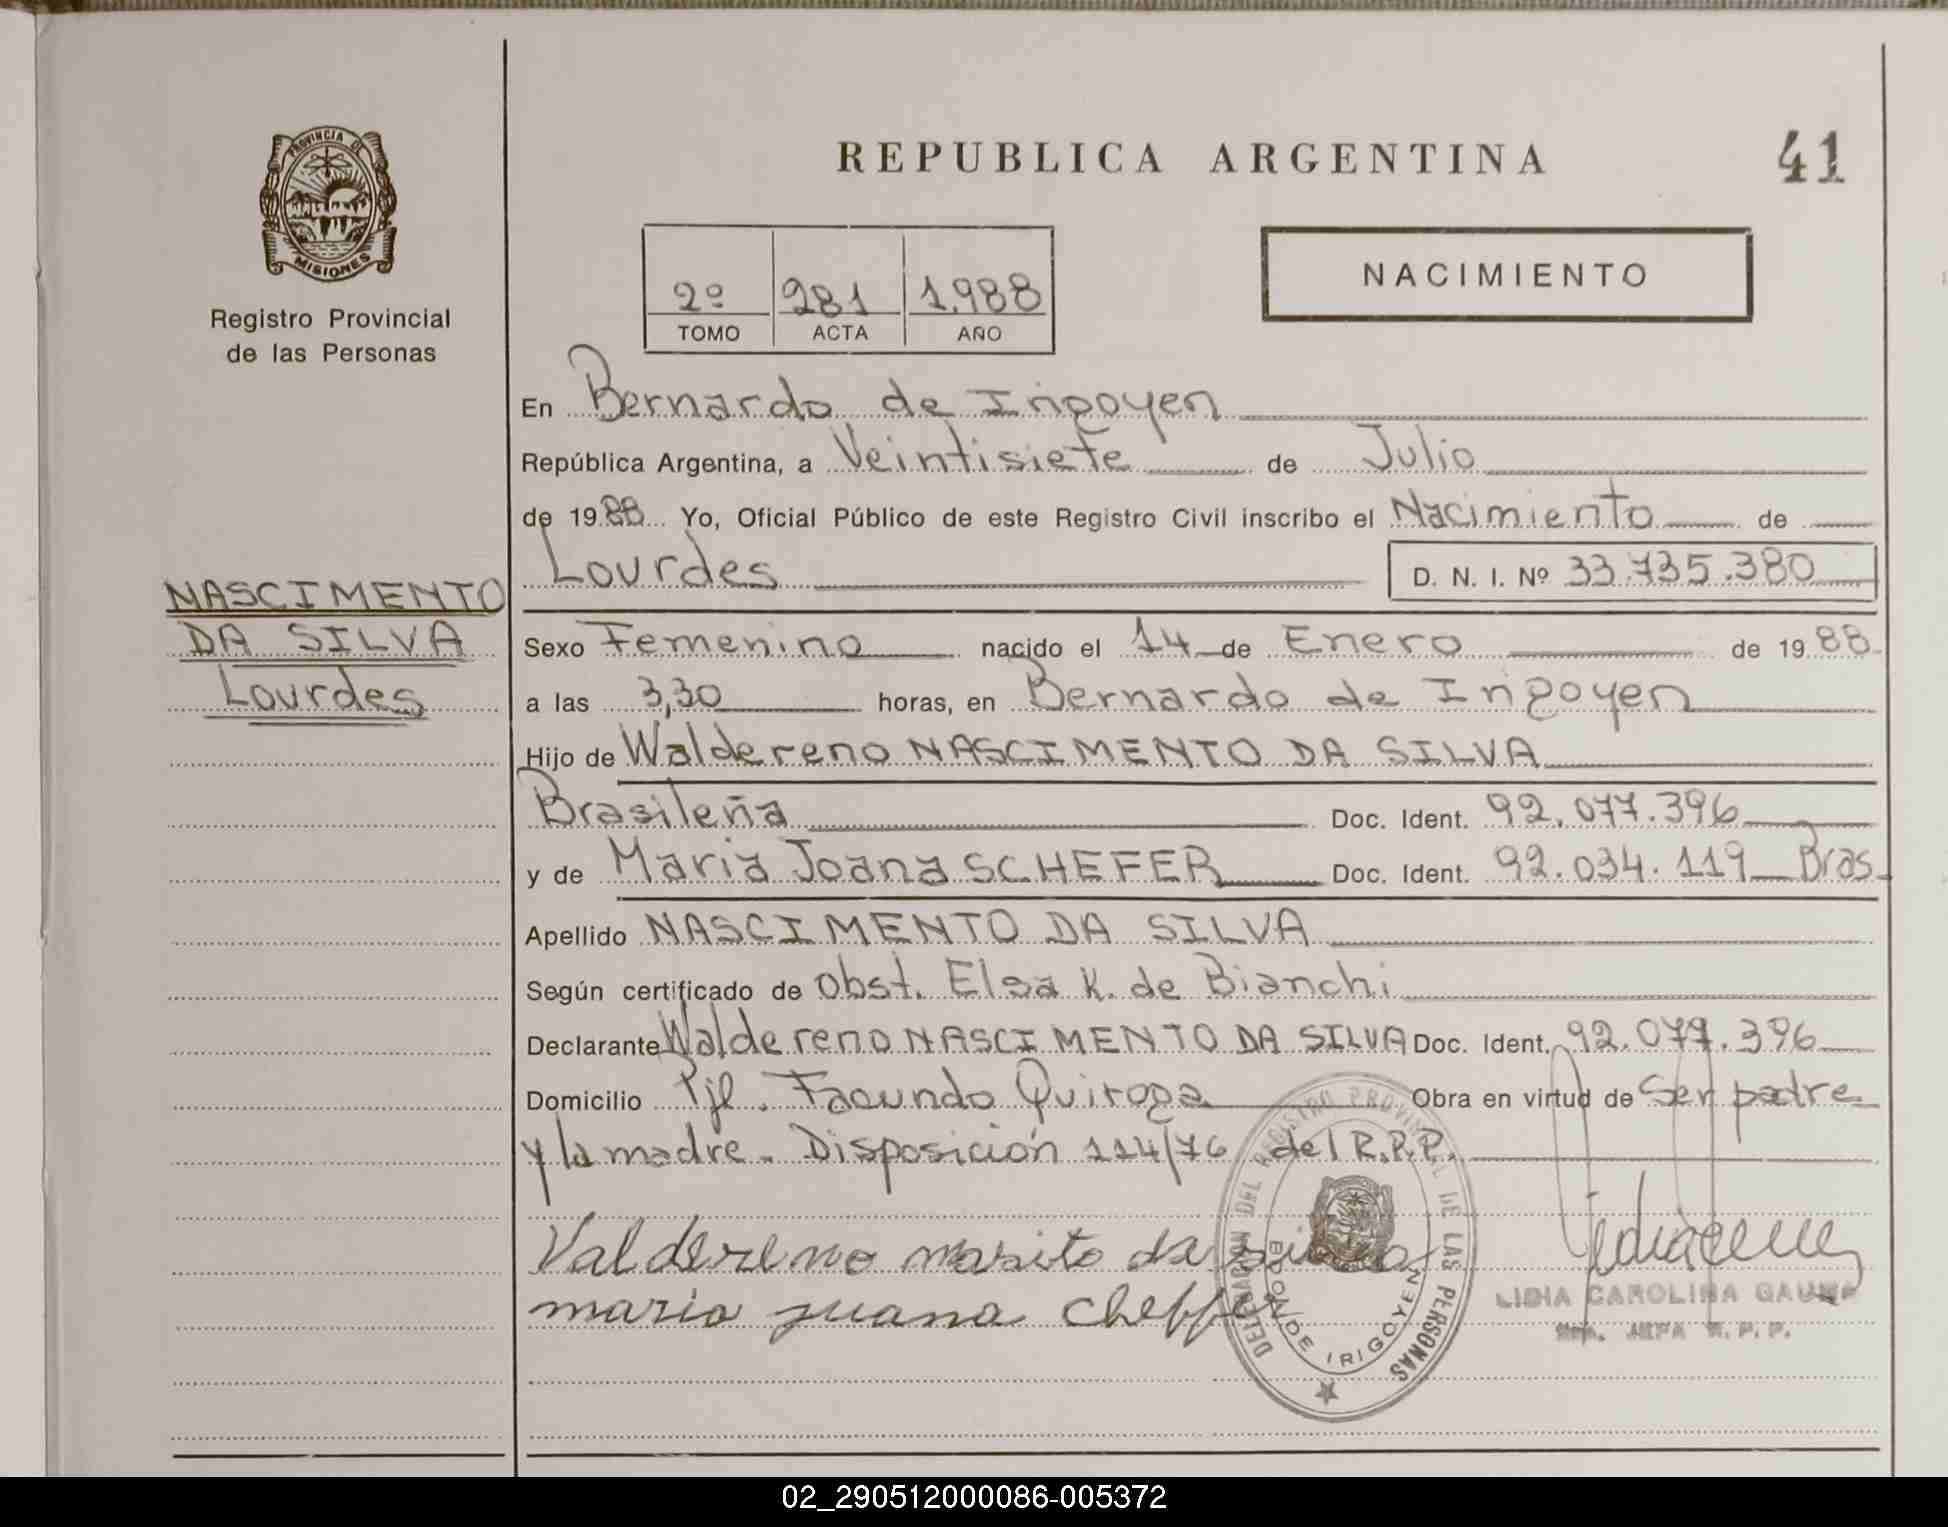 PROVINCIA DE
MISIONES
Registro Provincial
de las Personas
REPUBLICA ARGENTINA
41
2º 281 1.988
TOMO ACTA AÑO
NACIMIENTO
En Bernardo de Irigoyen
República Argentina, a Veintisiete de Julio
de 1988 Yo, Oficial Público de este Registro Civil inscribo el Nacimiento de
Lourdes D. N. I. Nº 33.735.380
NASCIMENTO
DA SILVA
Lourdes
Sexo Femenino nacido el 14 de Enero de 1988
a las 3,30 horas, en Bernardo de Irigoyen
Hijo de Waldereno NASCIMENTO DA SILVA
Brasileña Doc. Ident. 92.077.396
y de Maria Joana SCHEFER Doc. Ident. 92.034.119 Bras.
Apellido NASCIMENTO DA SILVA
Según certificado de Obst. Elsa K. de Bianchi
Declarante Waldereno NASCIMENTO DA SILVA Doc. Ident. 92.077.396
Domicilio Pje. Facundo Quiroga Obra en virtud de Ser padre
y la madre. Disposición 114/76 del R.P.P.
Valdereno masito da silva
maria juana cheffer
DELEGACION DEL REGISTRO PROVINCIAL DE LAS PERSONAS
BDO. DE IRIGOYEN
LIDIA CAROLINA GAUNA
JEFA R.P.P.
02_290512000086-005372